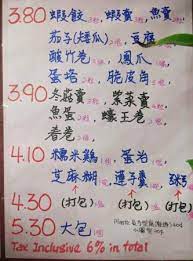 3.80 蝦餃 蝦賣 魚賣
茄子(矮瓜) 豆腐
鼓竹卷 鳳爪
蛋塔 脆皮角
3.90 冬菇賣 紫菜賣
魚蛋 蠔王卷
春卷
4.10 糯米雞 蛋治
芝麻糊 蓮子羹 粥
4.30 (打包) (打包)
5.30 大包
Tax Inclusive 6% in total